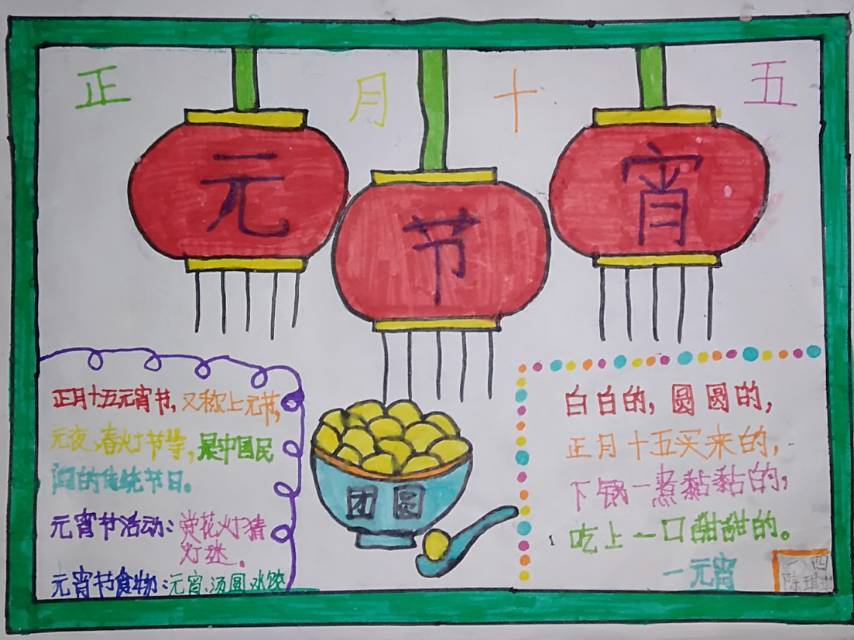 正 月 十 五
元 节 宵
正月十五元宵节,又称上元节,
元夜、春灯节等,是中国民
间的传统节日。
元宵节活动:赏花灯猜
灯迷。
元宵节食物:元宵、汤圆、水饺
团圆
白白的,圆圆的,
正月十五买来的,
下锅一煮黏黏的,
吃上一口甜甜的。
—元宵